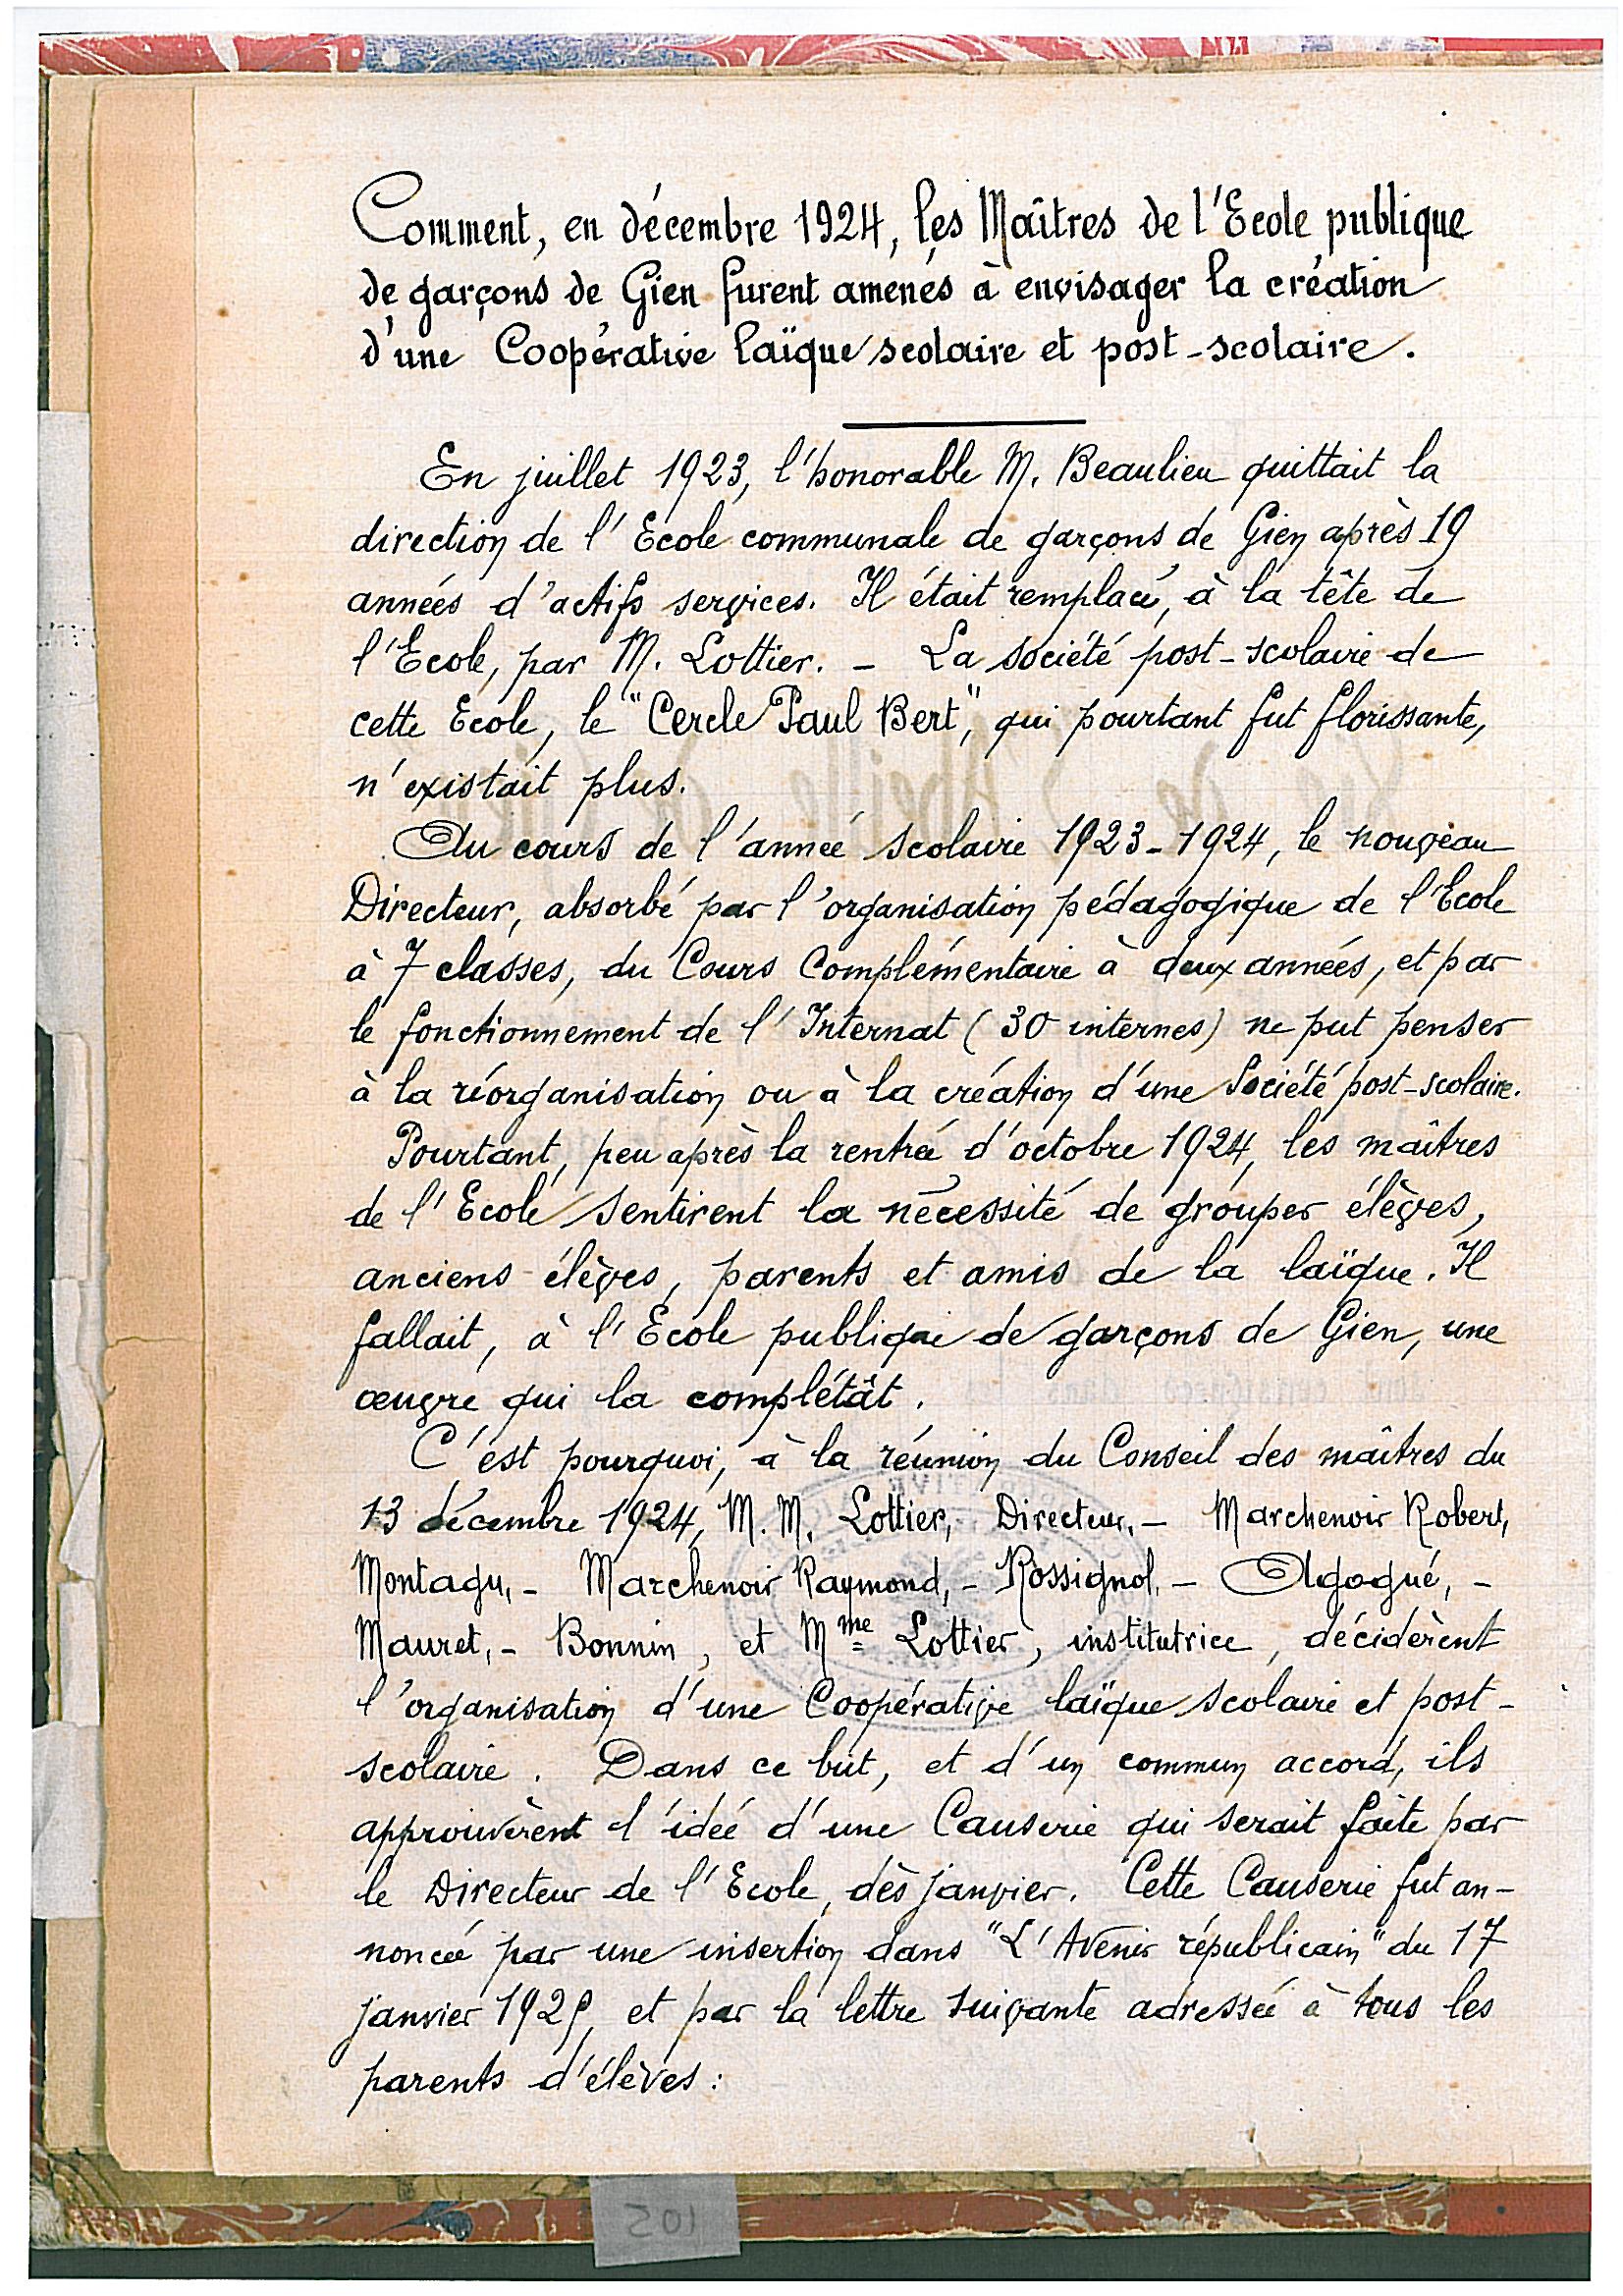 Comment, en décembre 1924, les Maîtres de l'Ecole publique
de garçons de Gien furent amenés à envisager la création
d'une Coopérative laïque scolaire et post-scolaire.
En juillet 1923, l'honorable M. Beaulieu quittait la
direction de l'Ecole communale de garçons de Gien après 19
années d'actifs services. Il était remplacé, à la tête de
l'Ecole, par M. Lottier. - La société post-scolaire de
cette Ecole, le "Cercle Paul Bert", qui pourtant fut florissante,
n'existait plus.
Au cours de l'année scolaire 1923-1924, le nouveau
Directeur, absorbé par l'organisation pédagogique de l'Ecole
à 7 classes, du Cours Complémentaire à deux années, et par
le fonctionnement de l'Internat (30 internes) ne put penser
à la réorganisation ou à la création d'une Société post-scolaire.
Pourtant, peu après la rentrée d'octobre 1924, les maîtres
de l'Ecole sentirent la nécessité de grouper élèves,
anciens élèves, parents et amis de la laïque. Il
fallait, à l'Ecole publique de garçons de Gien, une
œuvre qui la complétât.
C'est pourquoi, à la réunion du Conseil des maîtres du
13 décembre 1924, M.M. Lottier, Directeur, - Marchenoir Robert,
Montagu, - Marchenoir Raymond, - Rossignol, - Agogué, -
Mauret, - Bonnin, et Mme Lottier, institutrice, décidèrent
l'organisation d'une Coopérative laïque scolaire et post-
scolaire. Dans ce but, et d'un commun accord, ils
approuvèrent l'idée d'une Causerie qui serait faite par
le Directeur de l'Ecole, dès janvier. Cette Causerie fut an-
noncée par une insertion dans "L'Avenir républicain" du 17
janvier 1925, et par la lettre suivante adressée à tous les
parents d'élèves :